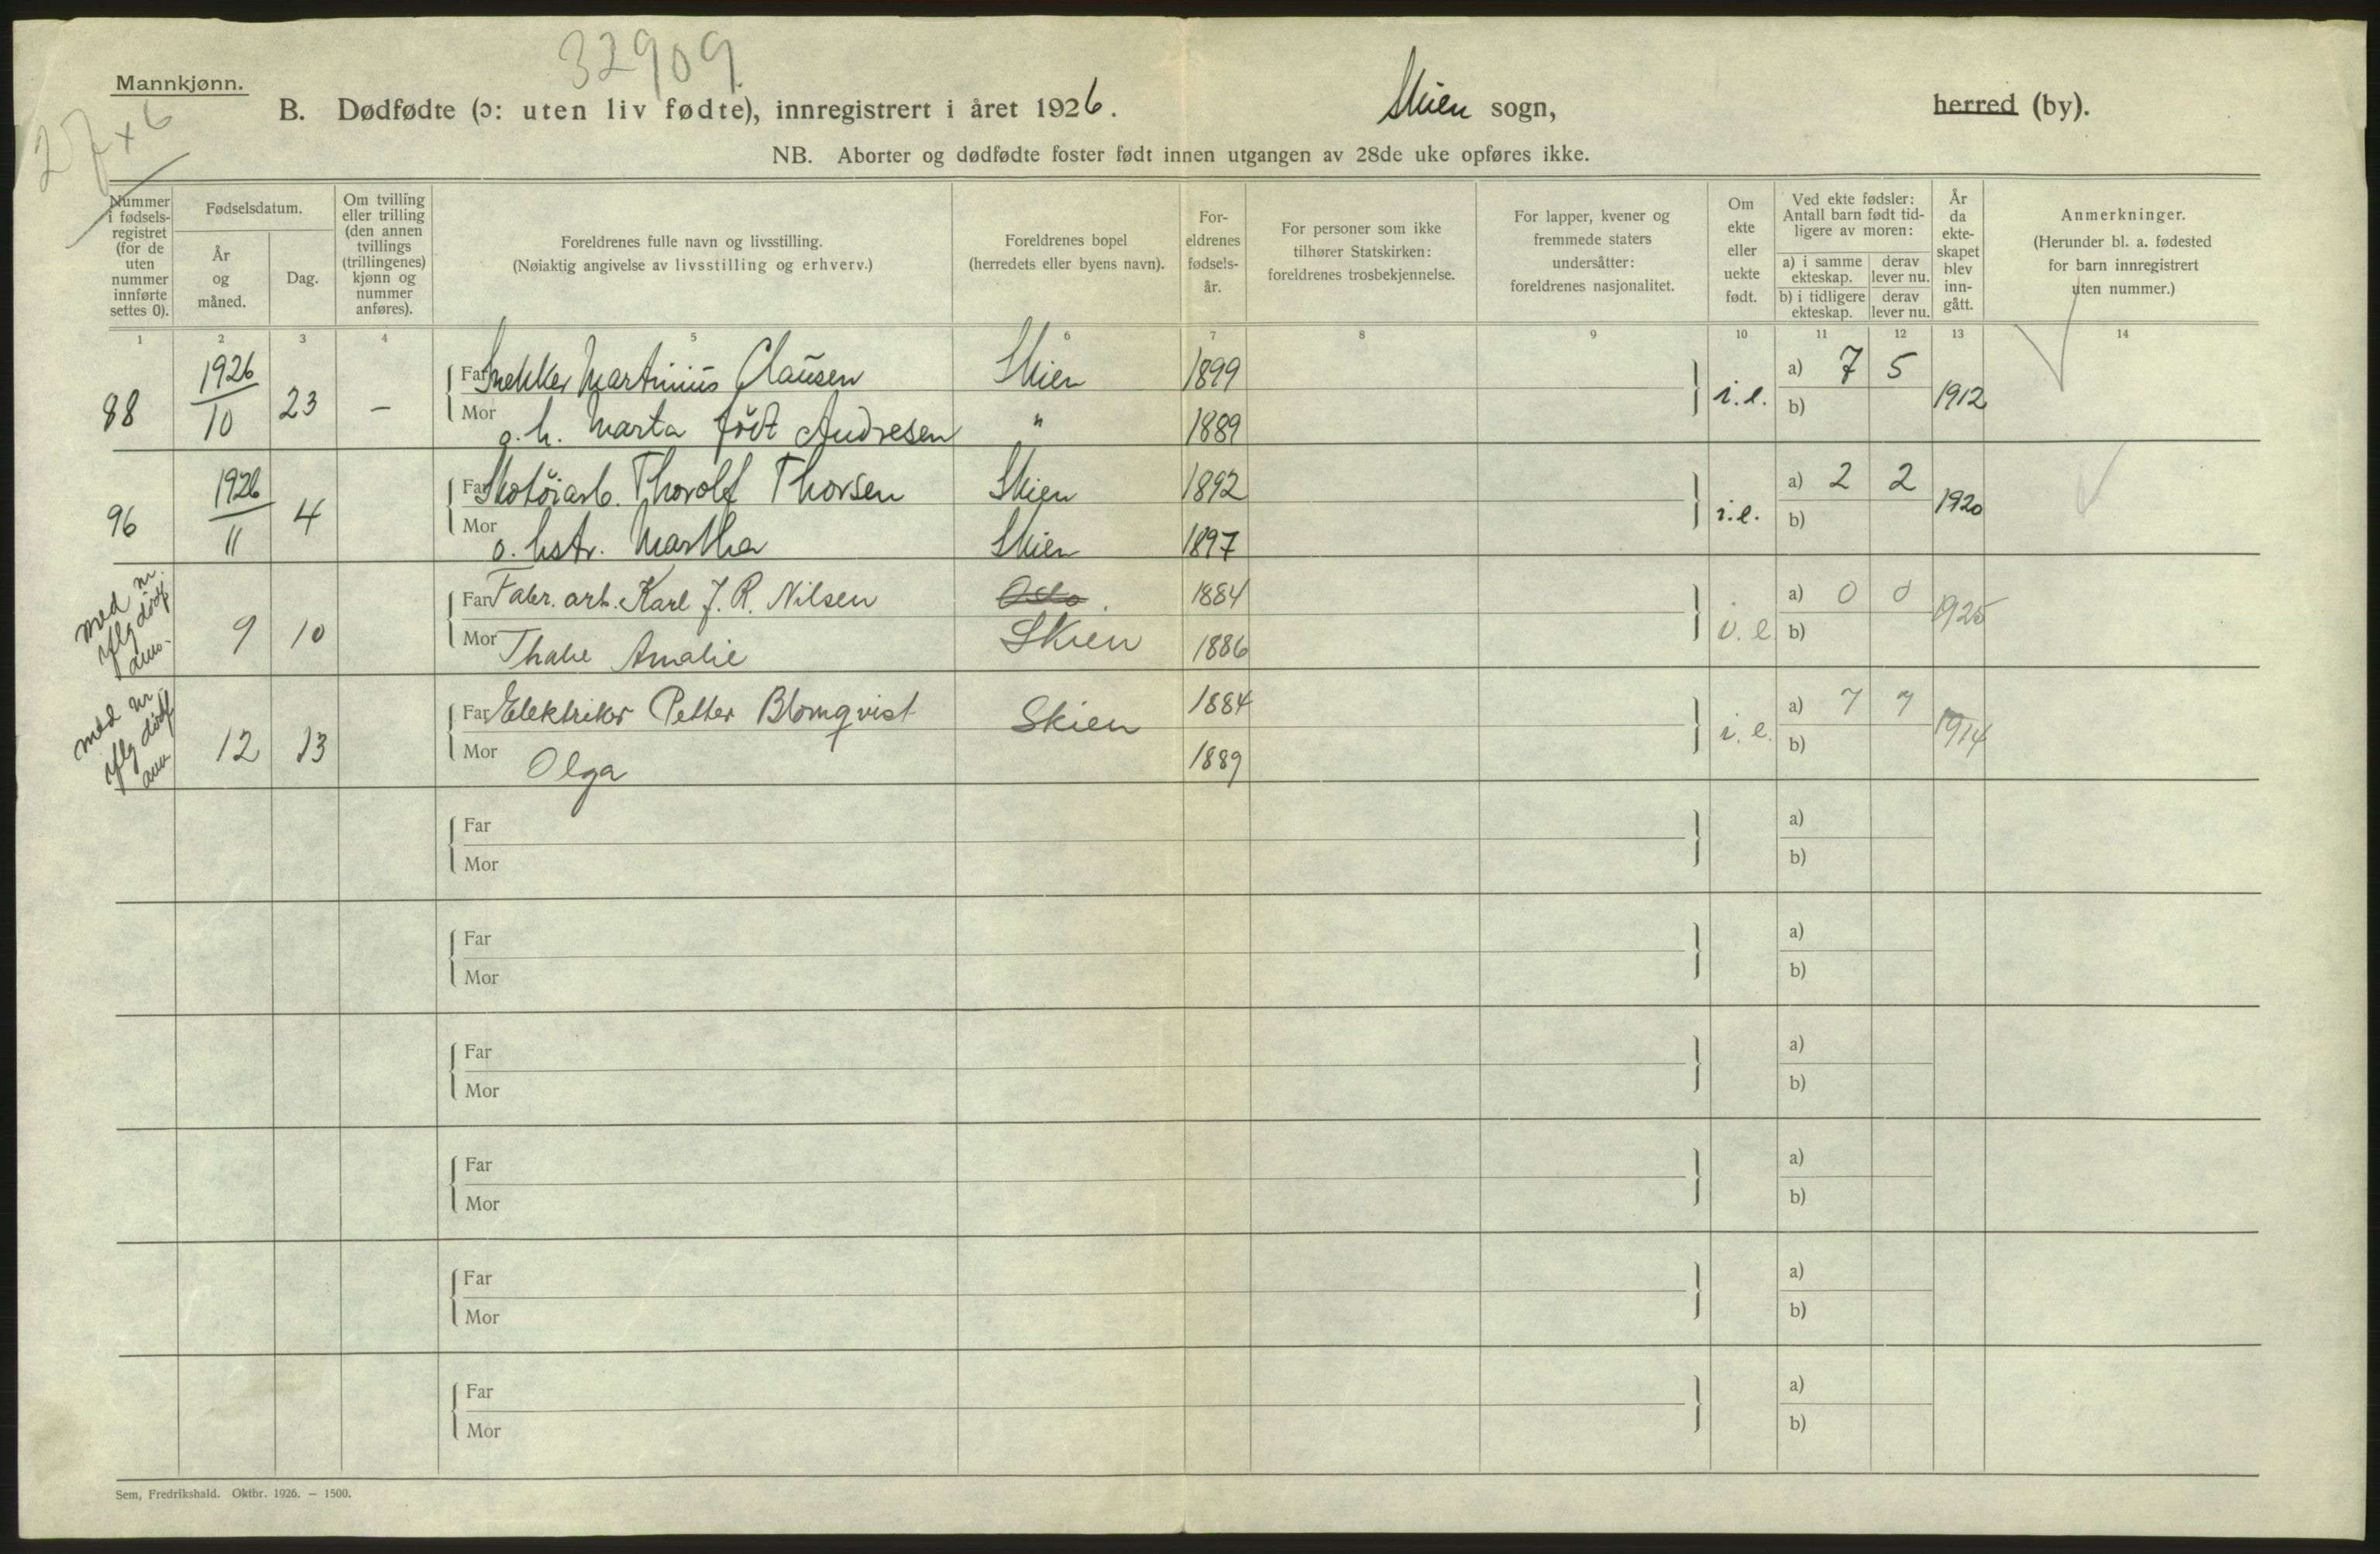 32909.
Mannkjønn.
27 + 6
B. Dødfødte (ɔ: uten liv fødte), innregistrert i året 1926. Skien sogn, herred (by).
NB. Aborter og dødfødte foster født innen utgangen av 28de uke opføres ikke.
Nummer
i fødsels-
registret
(for de
uten
nummer
innførte
settes 0).
Fødselsdatum.
År
og
måned.
Dag.
Om tvilling
eller trilling
(den annen
tvillings
(trillingenes)
kjønn og
nummer
anføres).
Foreldrenes fulle navn og livsstilling.
(Nøiaktig angivelse av livsstilling og erhverv.)
Foreldrenes bopel
(herredets eller byens navn).
For-
eldrenes
fødsels-
år.
For personer som ikke
tilhører Statskirken:
foreldrenes trosbekjennelse.
For lapper, kvener og
fremmede staters
undersåtter:
foreldrenes nasjonalitet.
Om
ekte
eller
uekte
født.
Ved ekte fødsler:
Antall barn født tid-
ligere av moren:
a) i samme
ekteskap.
derav
lever nu.
b) i tidligere
ekteskap.
derav
lever nu.
År
da
ekte-
skapet
blev
inn-
gått.
Anmerkninger.
(Herunder bl. a. fødested
for barn innregistrert
uten nummer.)
1 2 3 4 5 6 7 8 9 10 11 12 13 14
88 1926/10 23 – Far Snekker Martinius Clausen Skien 1899 i.e. a) 7 5 1912
Mor g. h. Marta født Andresen " 1889 b)
96 1926/11 4 Far Skotöiarb. Thorolf Thorsen Skien 1892 i.e. a) 2 2 1920
Mor o. hstr. Martha Skien 1897 b)
med nr.
iflg dödf
anm.
9 10 Far Fabr. arb. Karl J. R. Nilsen Oslo. 1884 i. e a) 0 0 1925
Mor Thale Amalie Skien 1886 b)
med nr
iflg dödf
anm
12 13 Far Elektriker Petter Blomqvist Skien 1884 i. e. a) 7 7 1914
Mor Olga 1889 b)
Far a)
Mor b)
Far a)
Mor b)
Far a)
Mor b)
Far a)
Mor b)
Far a)
Mor b)
Far a)
Mor b)
Sem, Fredrikshald. Oktbr. 1926. — 1500.